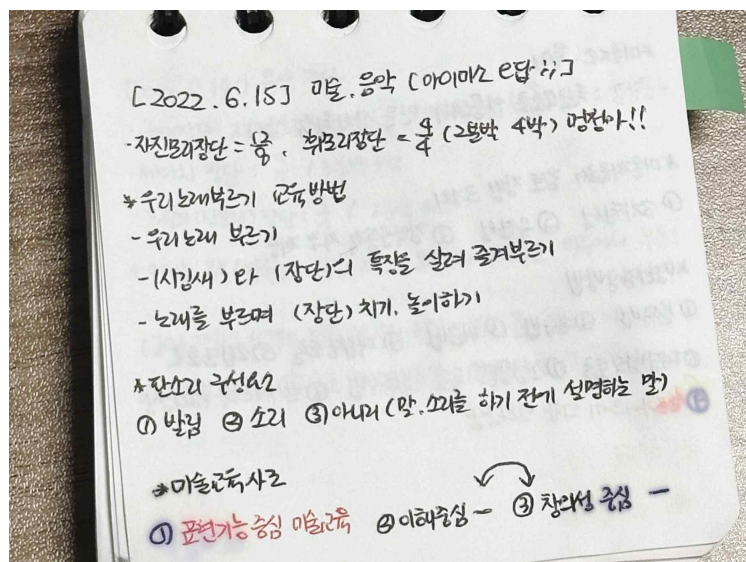 [2022.6.15] 미술.음악 [아이미소 e답 ;;]
- 자진모리장단 = 12/8, 휘모리장단 = 4/4 (2분박 4박) 멍청아!!
* 우리노래부르기 교육방법
- 우리노래 부르기
- (시김새)와 (장단)의 특징을 살려 즐겨부르기
- 노래를 부르며 (장단)치기, 놀이하기
* 판소리 구성요소
① 발림 ② 소리 ③ 아니리 (말, 소리를 하기 전에 설명하는 말)
* 미술교육사조
① 표현기능 중심 미술교육 ② 이해중심 - ③ 창의성 중심 -